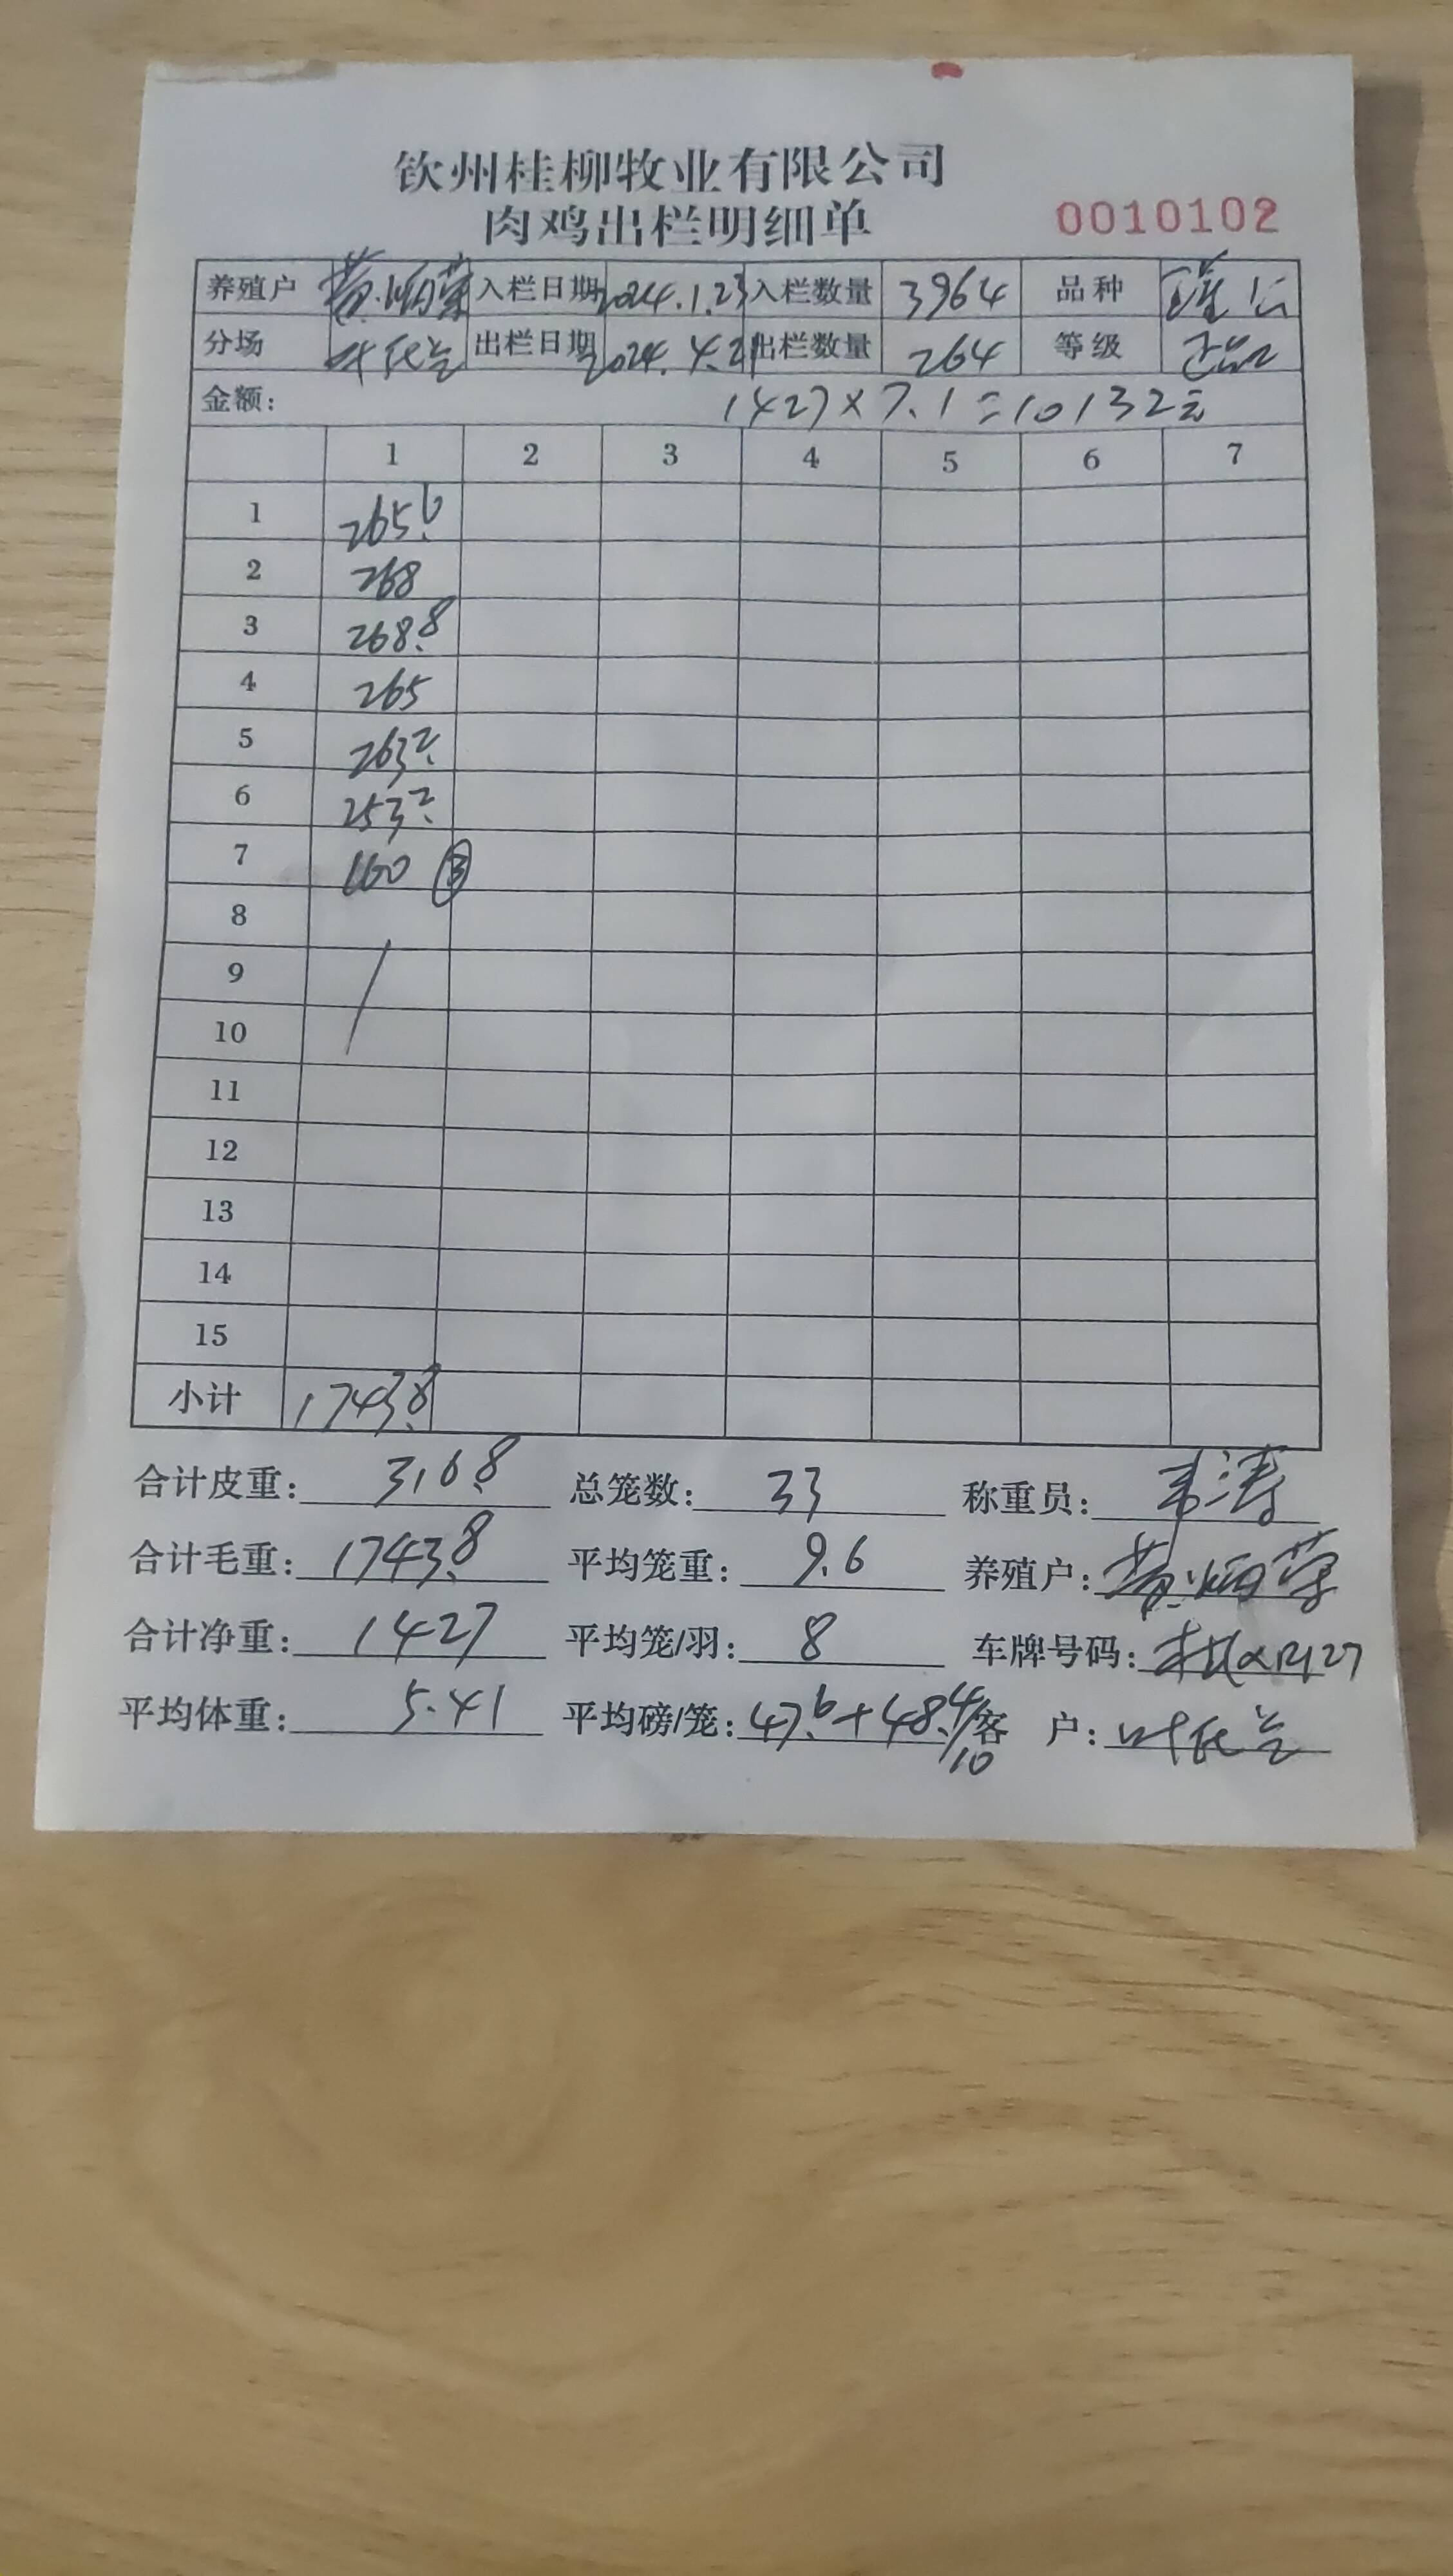 钦州桂柳牧业有限公司
肉鸡出栏明细单 0010102
养殖户 黄炳荣 入栏日期 2024.1.23 入栏数量 3964 品种
分场 出栏日期 2024.4.21 出栏数量 264 等级 正品
金额: 1427×7.1=10132元
1 2 3 4 5 6 7
1 265.6
2 268
3 268.8
4 265
5 263.2
6 253.2
7 160 ③
8
9
10
11
12
13
14
15
小计 1743.8
合计皮重: 316.8 总笼数: 33 称重员: 韦涛
合计毛重: 1743.8 平均笼重: 9.6 养殖户: 黄炳荣
合计净重: 1427 平均笼/羽: 8 车牌号码:
平均体重: 5.41 平均磅/笼: 47.6+48.4/10 客 户: